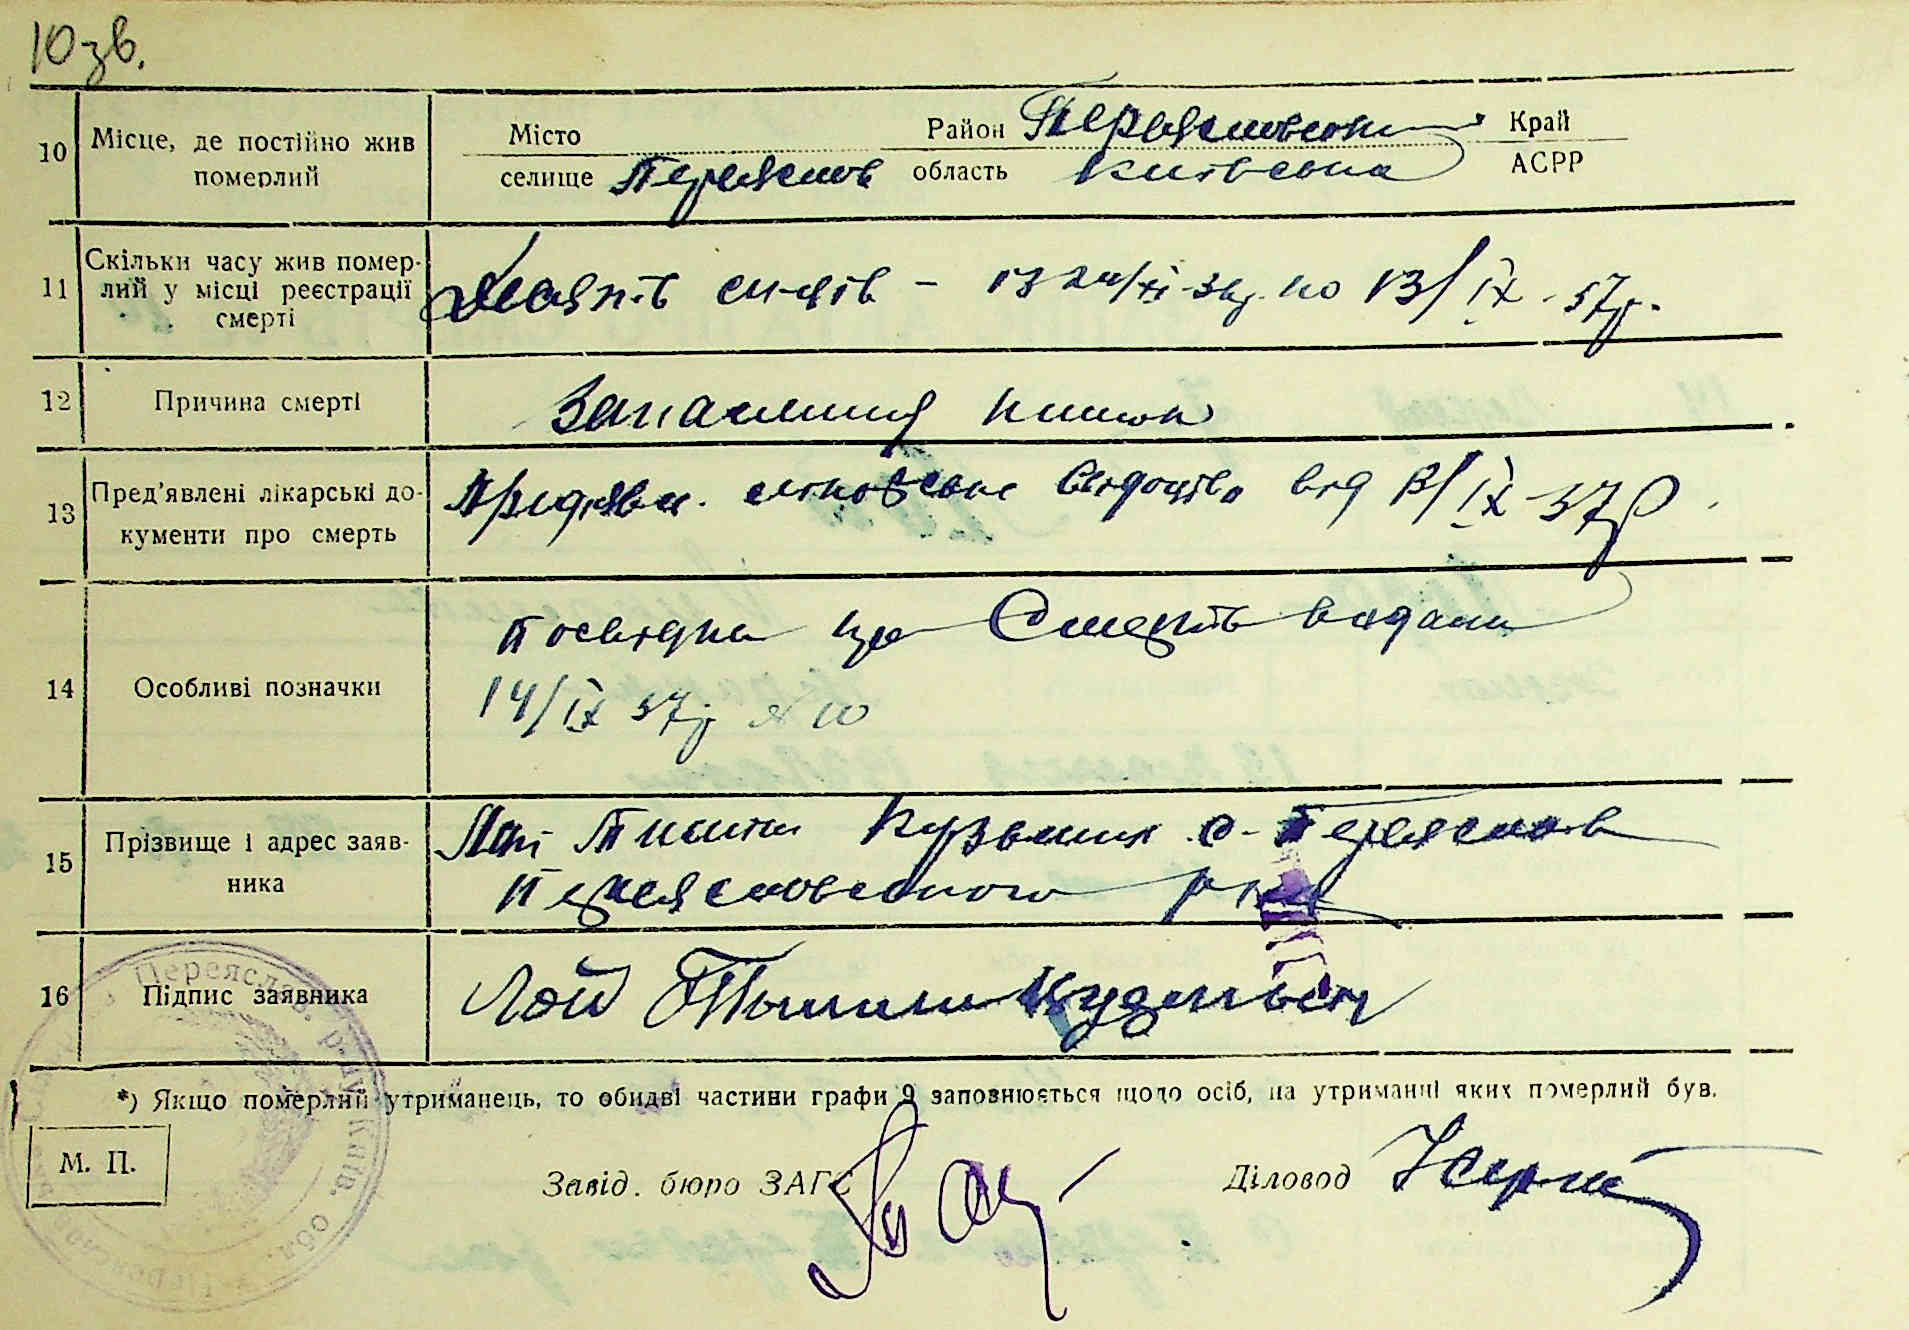 10 зв.
10 Місце, де постійно жив Місто Район Переяславськ Край
померлий селище Переяслов область Київська АСРР
11 Скільки часу жив помер-
лий у місці реєстрації
смерті
місяців - із 24/XI-36р. по 13/IX-37р.
12 Причина смерті Запалення кишок
13 Пред'явлені лікарські до-
кументи про смерть
Предявл. свідоцтво від 13/IX-37р.
14 Особливі позначки
Посвідка про Смерть видана
14/IX 37р № 10
15 Прізвище і адрес заяв-
ника
Кузьмич с. Переяслов
Переясловського р-на
16 Підпис заявника Лой
*) Якщо померлий утриманець, то обидві частини графи 9 заповнюється щодо осіб, на утриманні яких померлий був.
М. П.
Завід. бюро ЗАГС Діловод
Переяслав. р-ну Київ. обл.